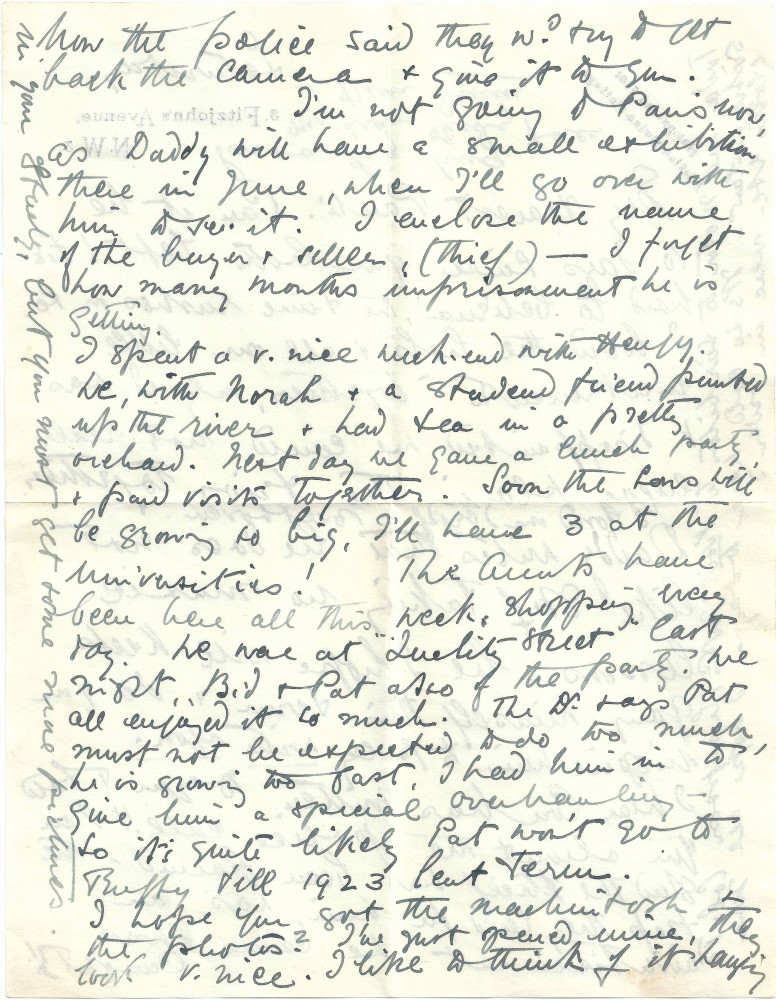 how the police said they wd. try to get
back the camera & give it to you.
I'm not going to Paris now,
as Daddy will have a small exhibition
there in June, when I'll go over with
him to see it. I enclose the name
of the buyer & seller, (thief) — I forget
how many months imprisonment he is
getting.
I spent a v. nice week-end with
We, with Norah & a student friend punted
up the river & had tea in a pretty
orchard. Next day we gave a lunch party,
& paid visits together. Soon the sons will
be growing so big, I'll have 3 at the
Universities! The Aunts have
been here all this week, shopping every
day. We were at "Quality Street" last
night, Bid & Pat also of the party. We
all enjoyed it so much. The Dr. says Pat
must not be expected to do too much,
he is growing too fast, I had him in to
give him a special overhauling—
So it's quite likely Pat won't go to
Rugby till 1923 Lent Term.
I hope you got the mackintosh &
the photos? I've just opened mine, they
look v. nice. I like to think of it hanging
in your study, but you must get some more pictures.
3, Fitzjohns Avenue,
N.W.